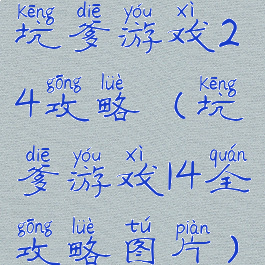 kēng diē yóu xì
坑爹游戏2
gōng lüè kēng
4攻略（坑
diē yóu xì quán
爹游戏14全
gōng lüè tú piàn
攻略图片）